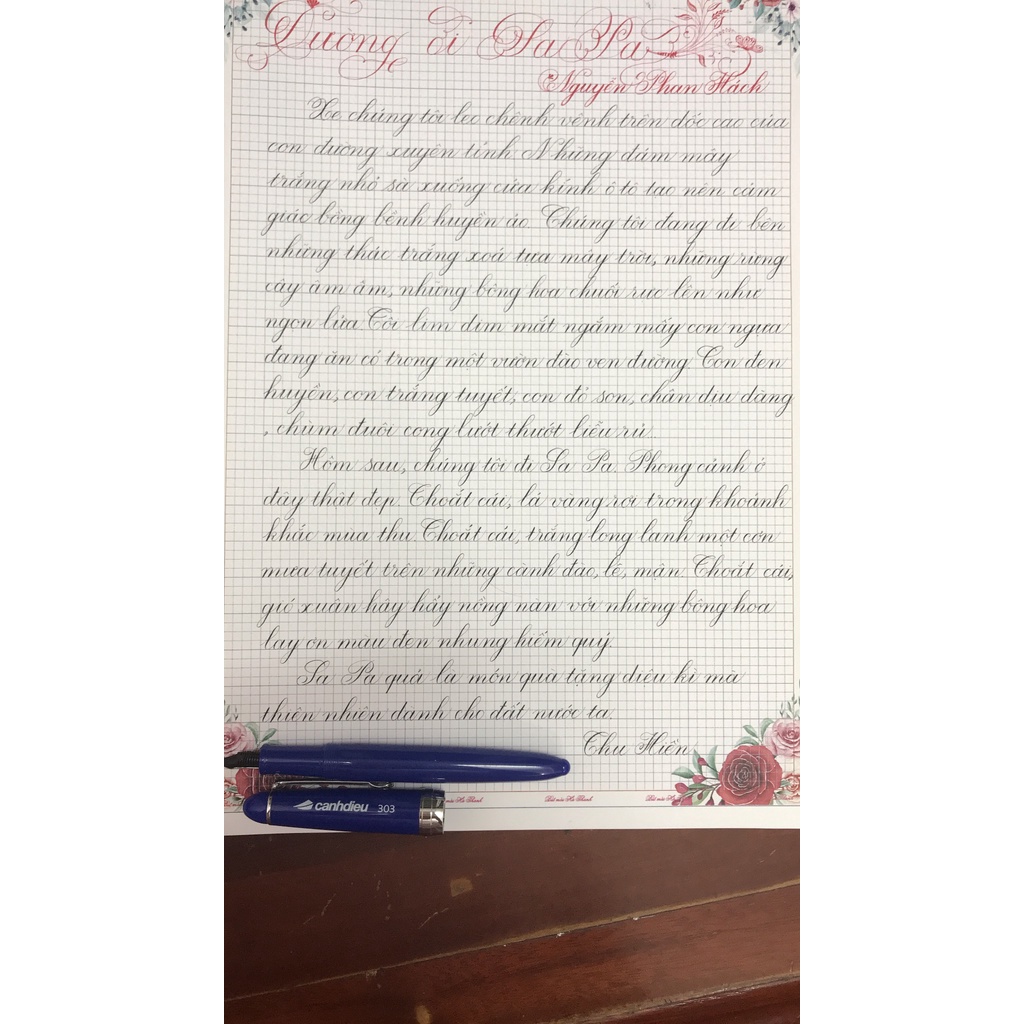 Đường đi Sa Pa
Nguyễn Phan Hách
Xe chúng tôi leo chênh vênh trên dốc cao của
con đường xuyên tỉnh. Những đám mây
trắng nhỏ sà xuống cửa kính ô tô tạo nên cảm
giác bồng bềnh huyền ảo. Chúng tôi đang đi bên
những thác trắng xoá tựa mây trời, những rừng
cây âm âm, những bông hoa chuối rực lên như
ngọn lửa. Tôi lim dim mắt ngắm mấy con ngựa
đang ăn cỏ trong một vườn đào ven đường. Con đen
huyền, con trắng tuyết, con đỏ son, chân dịu dàng
, chùm đuôi cong lướt thướt liễu rủ.
Hôm sau, chúng tôi đi Sa Pa. Phong cảnh ở
đây thật đẹp. Thoắt cái, lá vàng rơi trong khoảnh
khắc mùa thu. Thoắt cái, trắng long lanh một cơn
mưa tuyết trên những cành đào, lê, mận. Thoắt cái,
gió xuân hây hẩy nồng nàn với những bông hoa
lay ơn màu đen nhung hiếm quý.
Sa Pa quả là món quà tặng diệu kì mà
thiên nhiên dành cho đất nước ta.
Thu Hiền
canhdieu 303